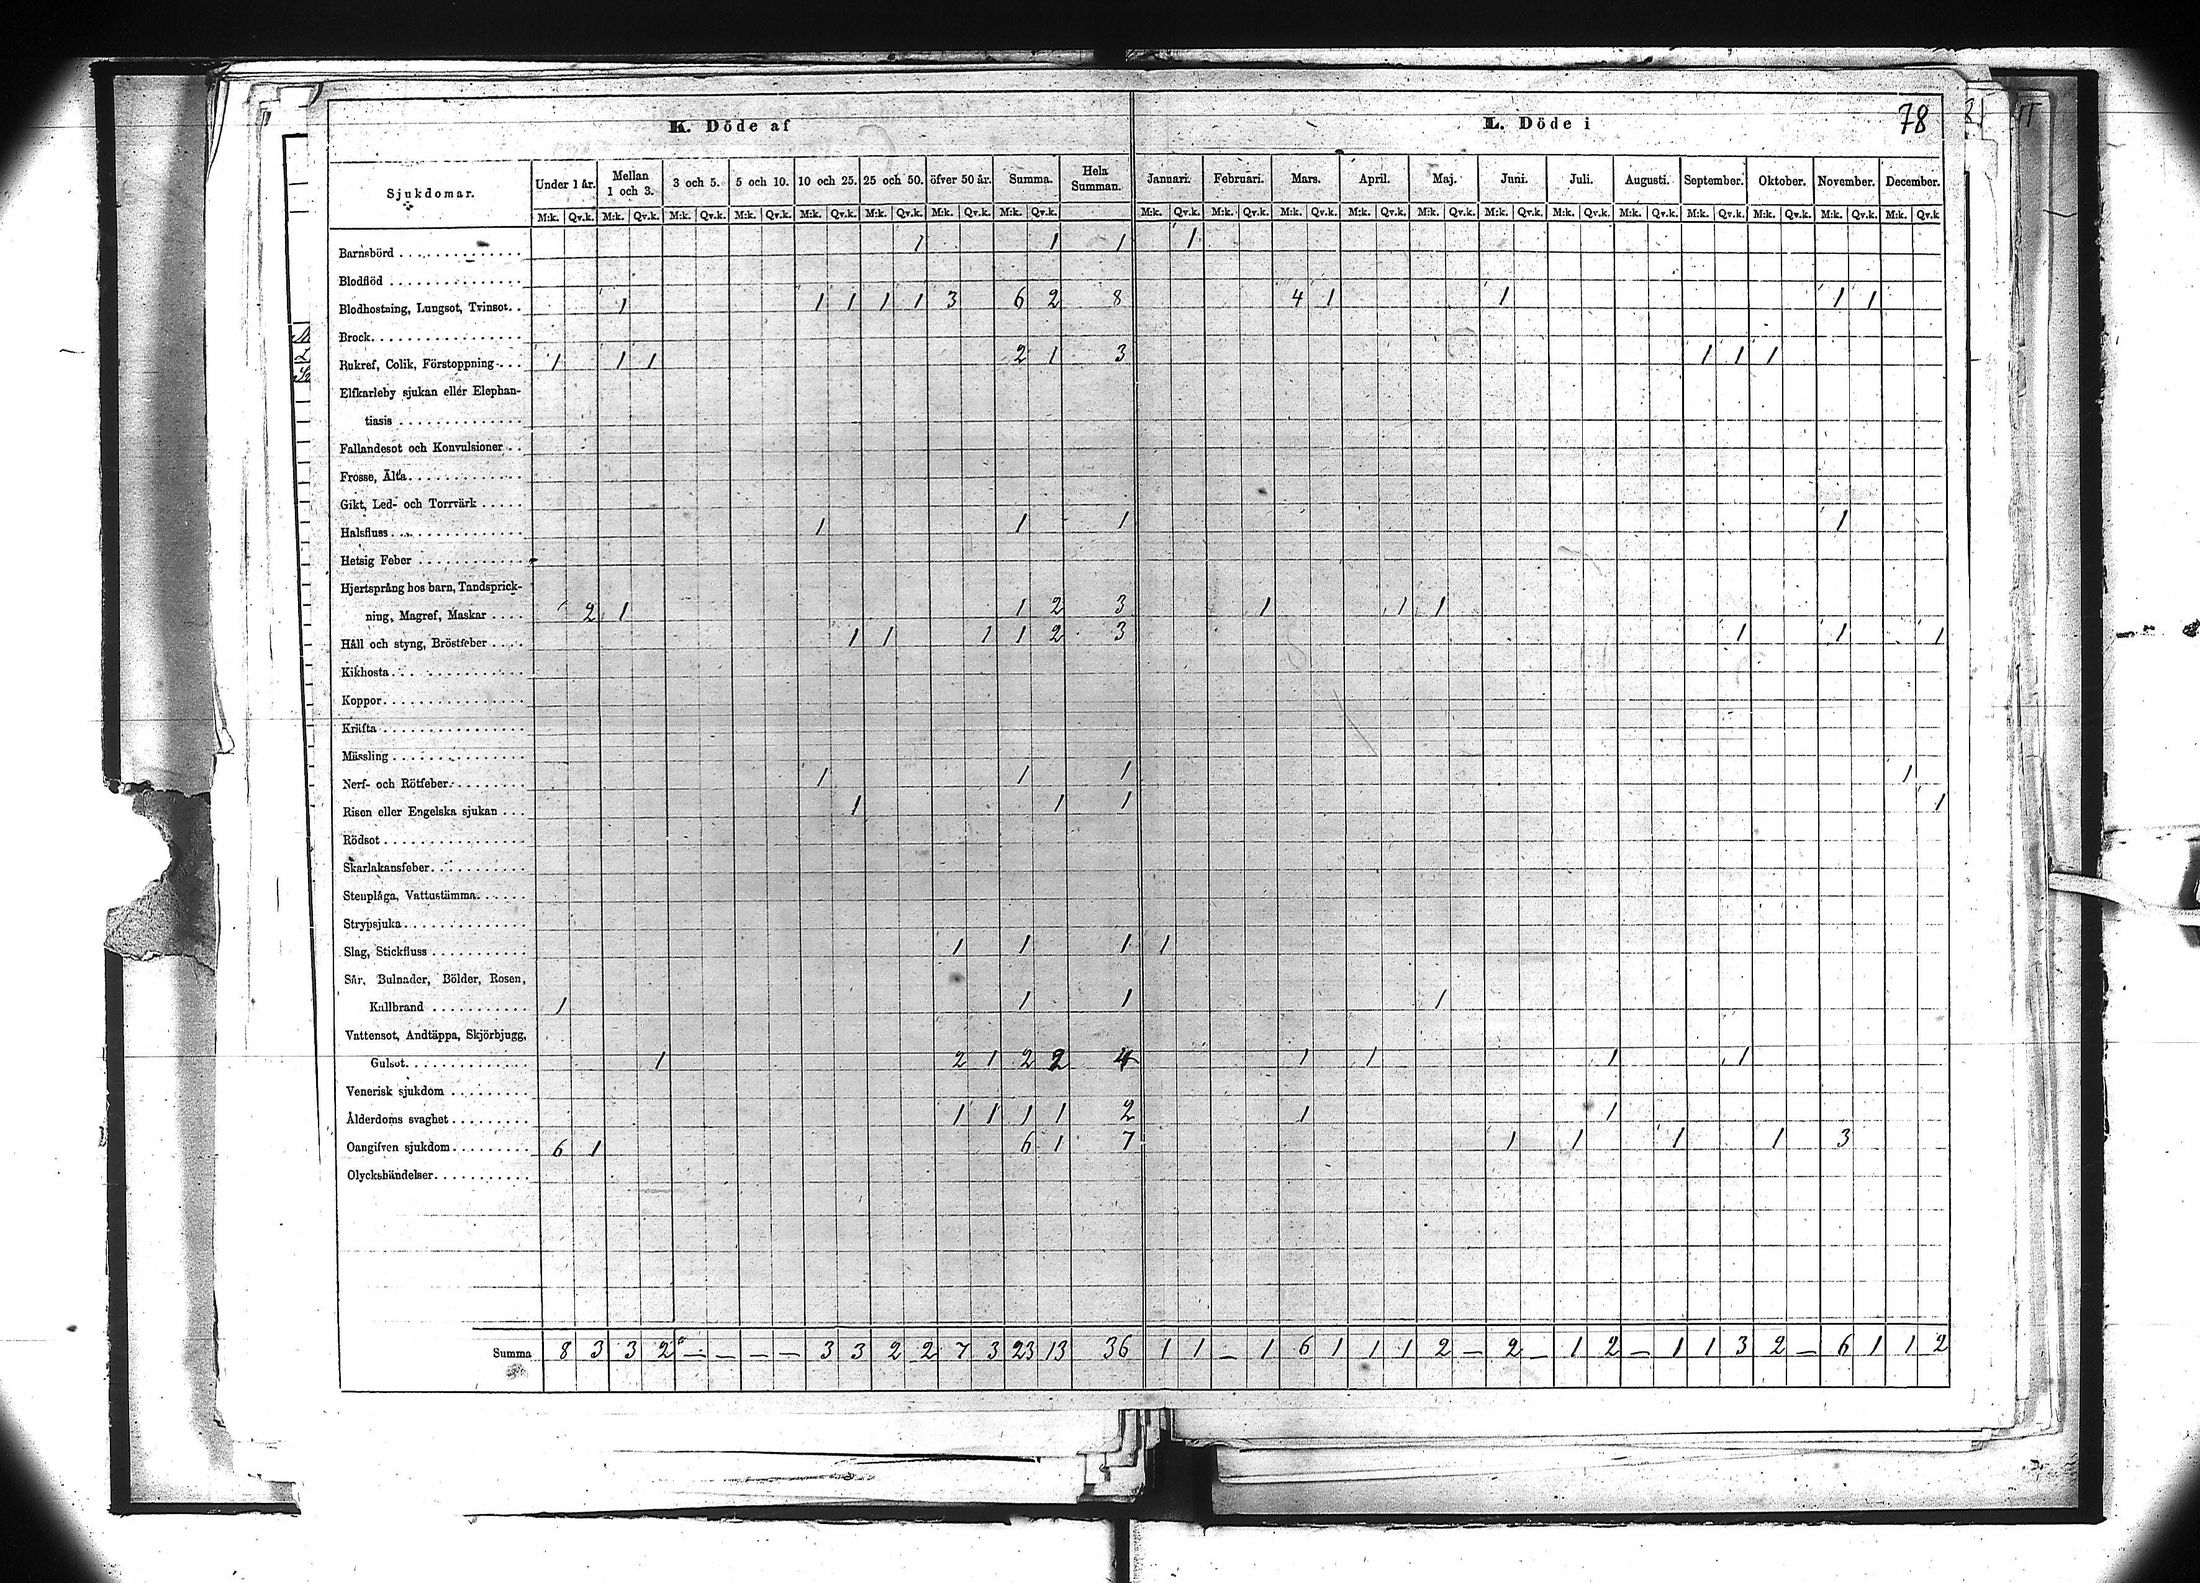 78
K. Döde af L. Döde i
Sjukdomar. Under 1 år. Mellan 1 och 3. 3 och 5. 5 och 10. 10 och 25. 25 och 50. öfver 50 år. Summa. Hela Summan. Januari. Februari. Mars. April. Maj. Juni. Juli. Augusti. September. Oktober. November. December.
M:k. Qv.k. M:k. Qv.k. M:k. Qv.k. M:k. Qv.k. M:k. Qv.k. M:k. Qv.k. M:k. Qv.k. M:k. Qv.k. M:k. Qv.k. M:k. Qv.k. M:k. Qv.k. M:k. Qv.k. M:k. Qv.k. M:k. Qv.k. M:k. Qv.k. M:k. Qv.k. M:k. Qv.k. M:k. Qv.k. M:k. Qv.k. M:k. Qv.k
Barnsbörd 1 1 1 1
Blodflöd
Blodhostning, Lungsot, Tvinsot. 1 1 1 1 1 3 6 2 8 4 1 1 1 1
Brock
Rukref, Colik, Förstoppning 1 1 1 2 1 3 1 1 1
Elfkarleby sjukan eller Elephan-
tiasis
Fallandesot och Konvulsioner
Frosse, Älta
Gikt, Led- och Torrvärk
Halsfluss 1 1 1 1
Hetsig Feber
Hjertsprång hos barn, Tandsprick-
ning, Magref, Maskar 2 1 1 2 3 1 1 1
Håll och styng, Bröstfeber 1 1 1 1 2 3 1 1 1
Kikhosta
Koppor
Kräfta
Mässling
Nerf- och Rötfeber 1 1 1 1
Risen eller Engelska sjukan 1 1 1 1
Rödsot
Skarlakansfeber
Stenplåga, Vattustämma
Strypsjuka
Slag, Stickfluss 1 1 1 1
Sår, Bulnader, Bölder, Rosen,
Kallbrand 1 1 1 1
Vattensot, Andtäppa, Skjörbjugg,
Gulsot 1 2 1 2 2 4 1 1 1 1
Venerisk sjukdom
Ålderdoms svaghet 1 1 1 1 2 1 1
Oangifven sjukdom 6 1 6 1 7 1 1 1 1 3
Olyckshändelser
Summa 8 3 3 2 — — — — 3 3 2 2 7 3 23 13 36 1 1 — 1 6 1 1 1 2 — 2 — 1 2 — 1 1 3 2 — 6 1 1 2